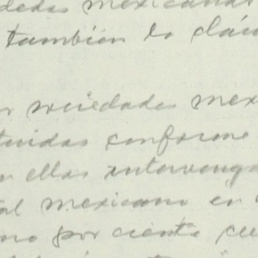 dades mexicanas
también la cláu
r sociedades mex
tuidas conforme
n ellas intervenga
al mexicano en
no por ciento cu